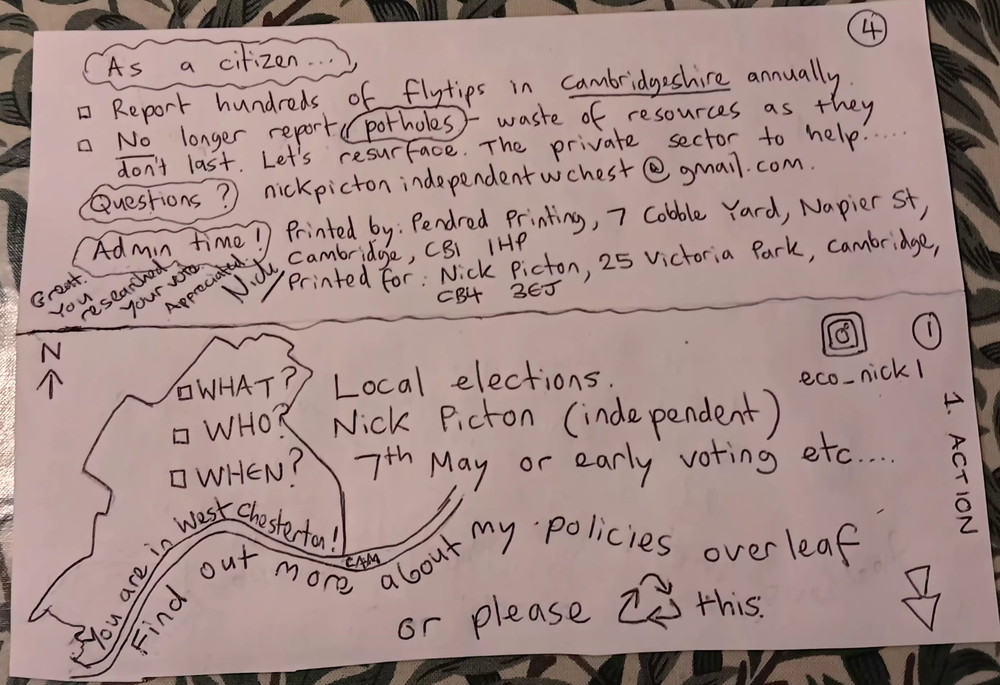 ④
As a citizen...,
□ Report hundreds of flytips in Cambridgeshire annually.
□ No longer report potholes - waste of resources as they
don't last. Let's resurface. The private sector to help.....
Questions? nickpictonindependentwchest@gmail.com.
Admin time! Printed by: Pendred Printing, 7 Cobble Yard, Napier St,
Cambridge, CB1 1HP
Printed for: Nick Picton, 25 Victoria Park, Cambridge,
CB4 3EJ
Great.
You
researched.
Your vote
Appreciated.
Nick
①
N
eco_nick1
□ WHAT? Local elections.
□ WHO? Nick Picton (independent)
□ WHEN? 7th May or early voting etc....
1. ACTION
You are in West Chesterton!
CAM
Find out more about my policies overleaf
or please ♺ this.